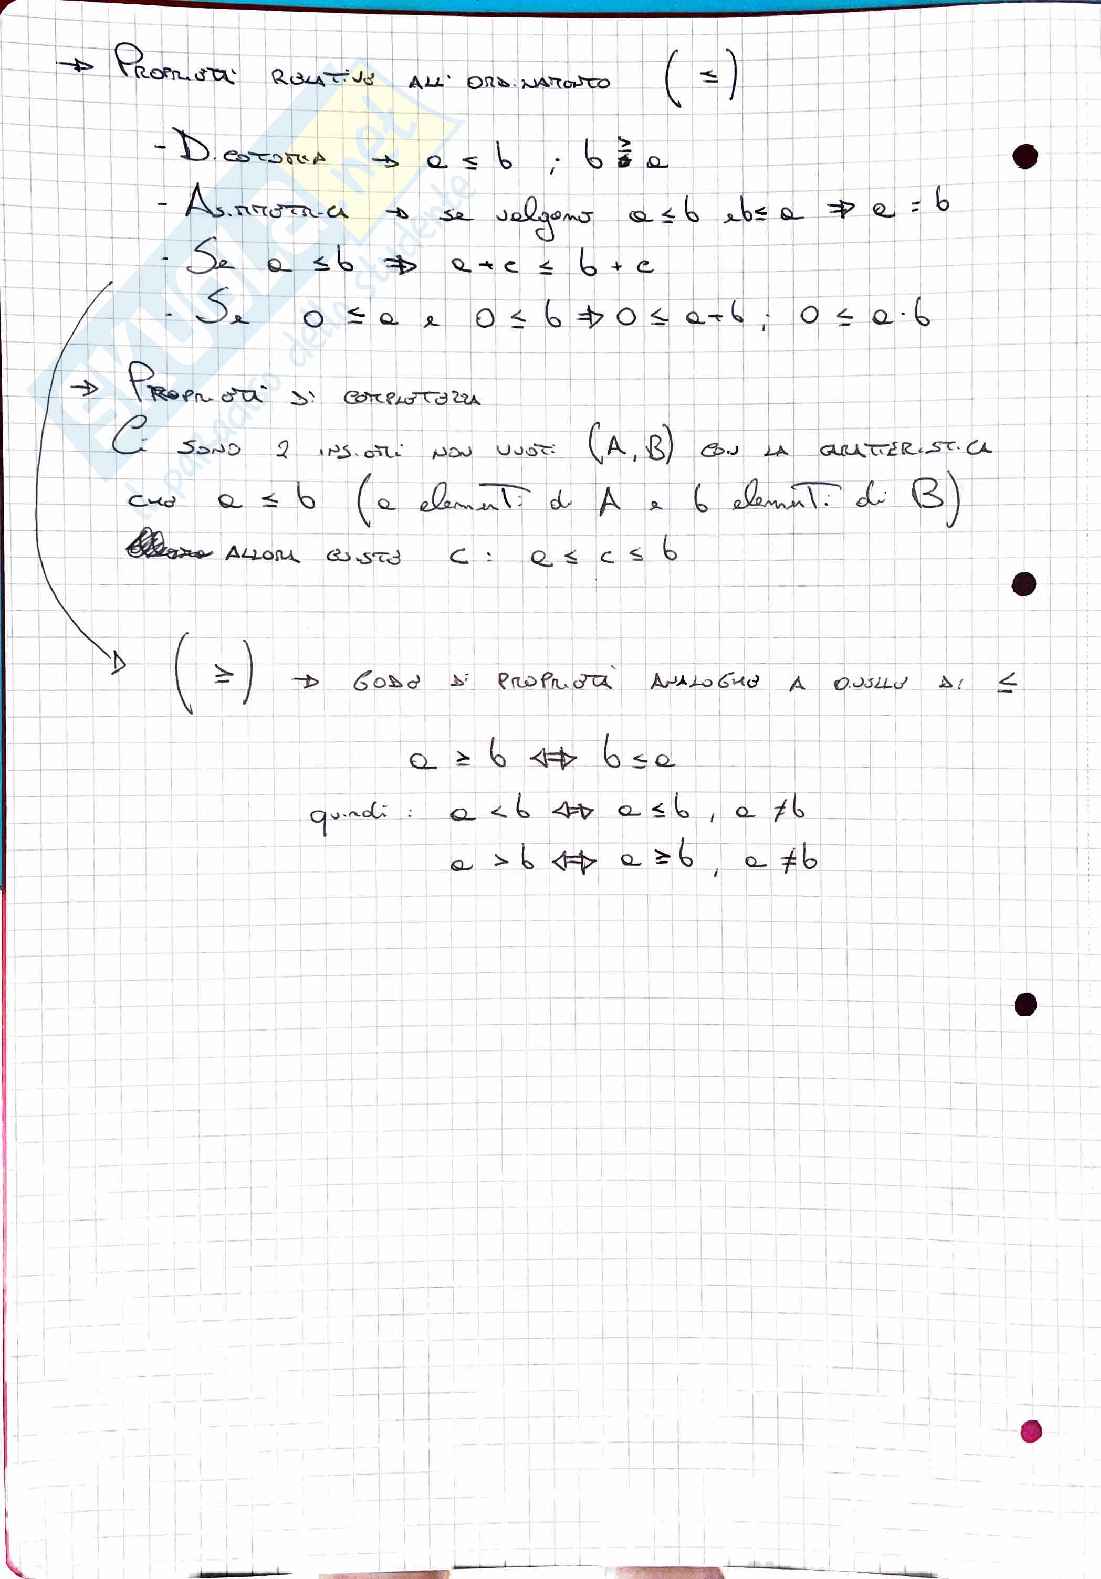 → Proprietà relative all'ordinamento (≤)
- Dicotomia → a ≤ b ; b ≥ a
- Asimmetrica → se valgono a ≤ b e b ≤ a ⇒ a = b
- Se a ≤ b ⇒ a + c ≤ b + c
- Se 0 ≤ a e 0 ≤ b ⇒ 0 ≤ a + b ; 0 ≤ a · b
→ Proprietà di completezza
Ci sono 2 insiemi non vuoti (A, B) con la caratteristica
che a ≤ b (a elementi di A e b elementi di B)
allora esiste c : a ≤ c ≤ b
(≥) → gode di proprietà analoghe a quelle di ≤
a ≥ b ⇔ b ≤ a
quindi : a < b ⇔ a ≤ b , a ≠ b
a > b ⇔ a ≥ b , a ≠ b